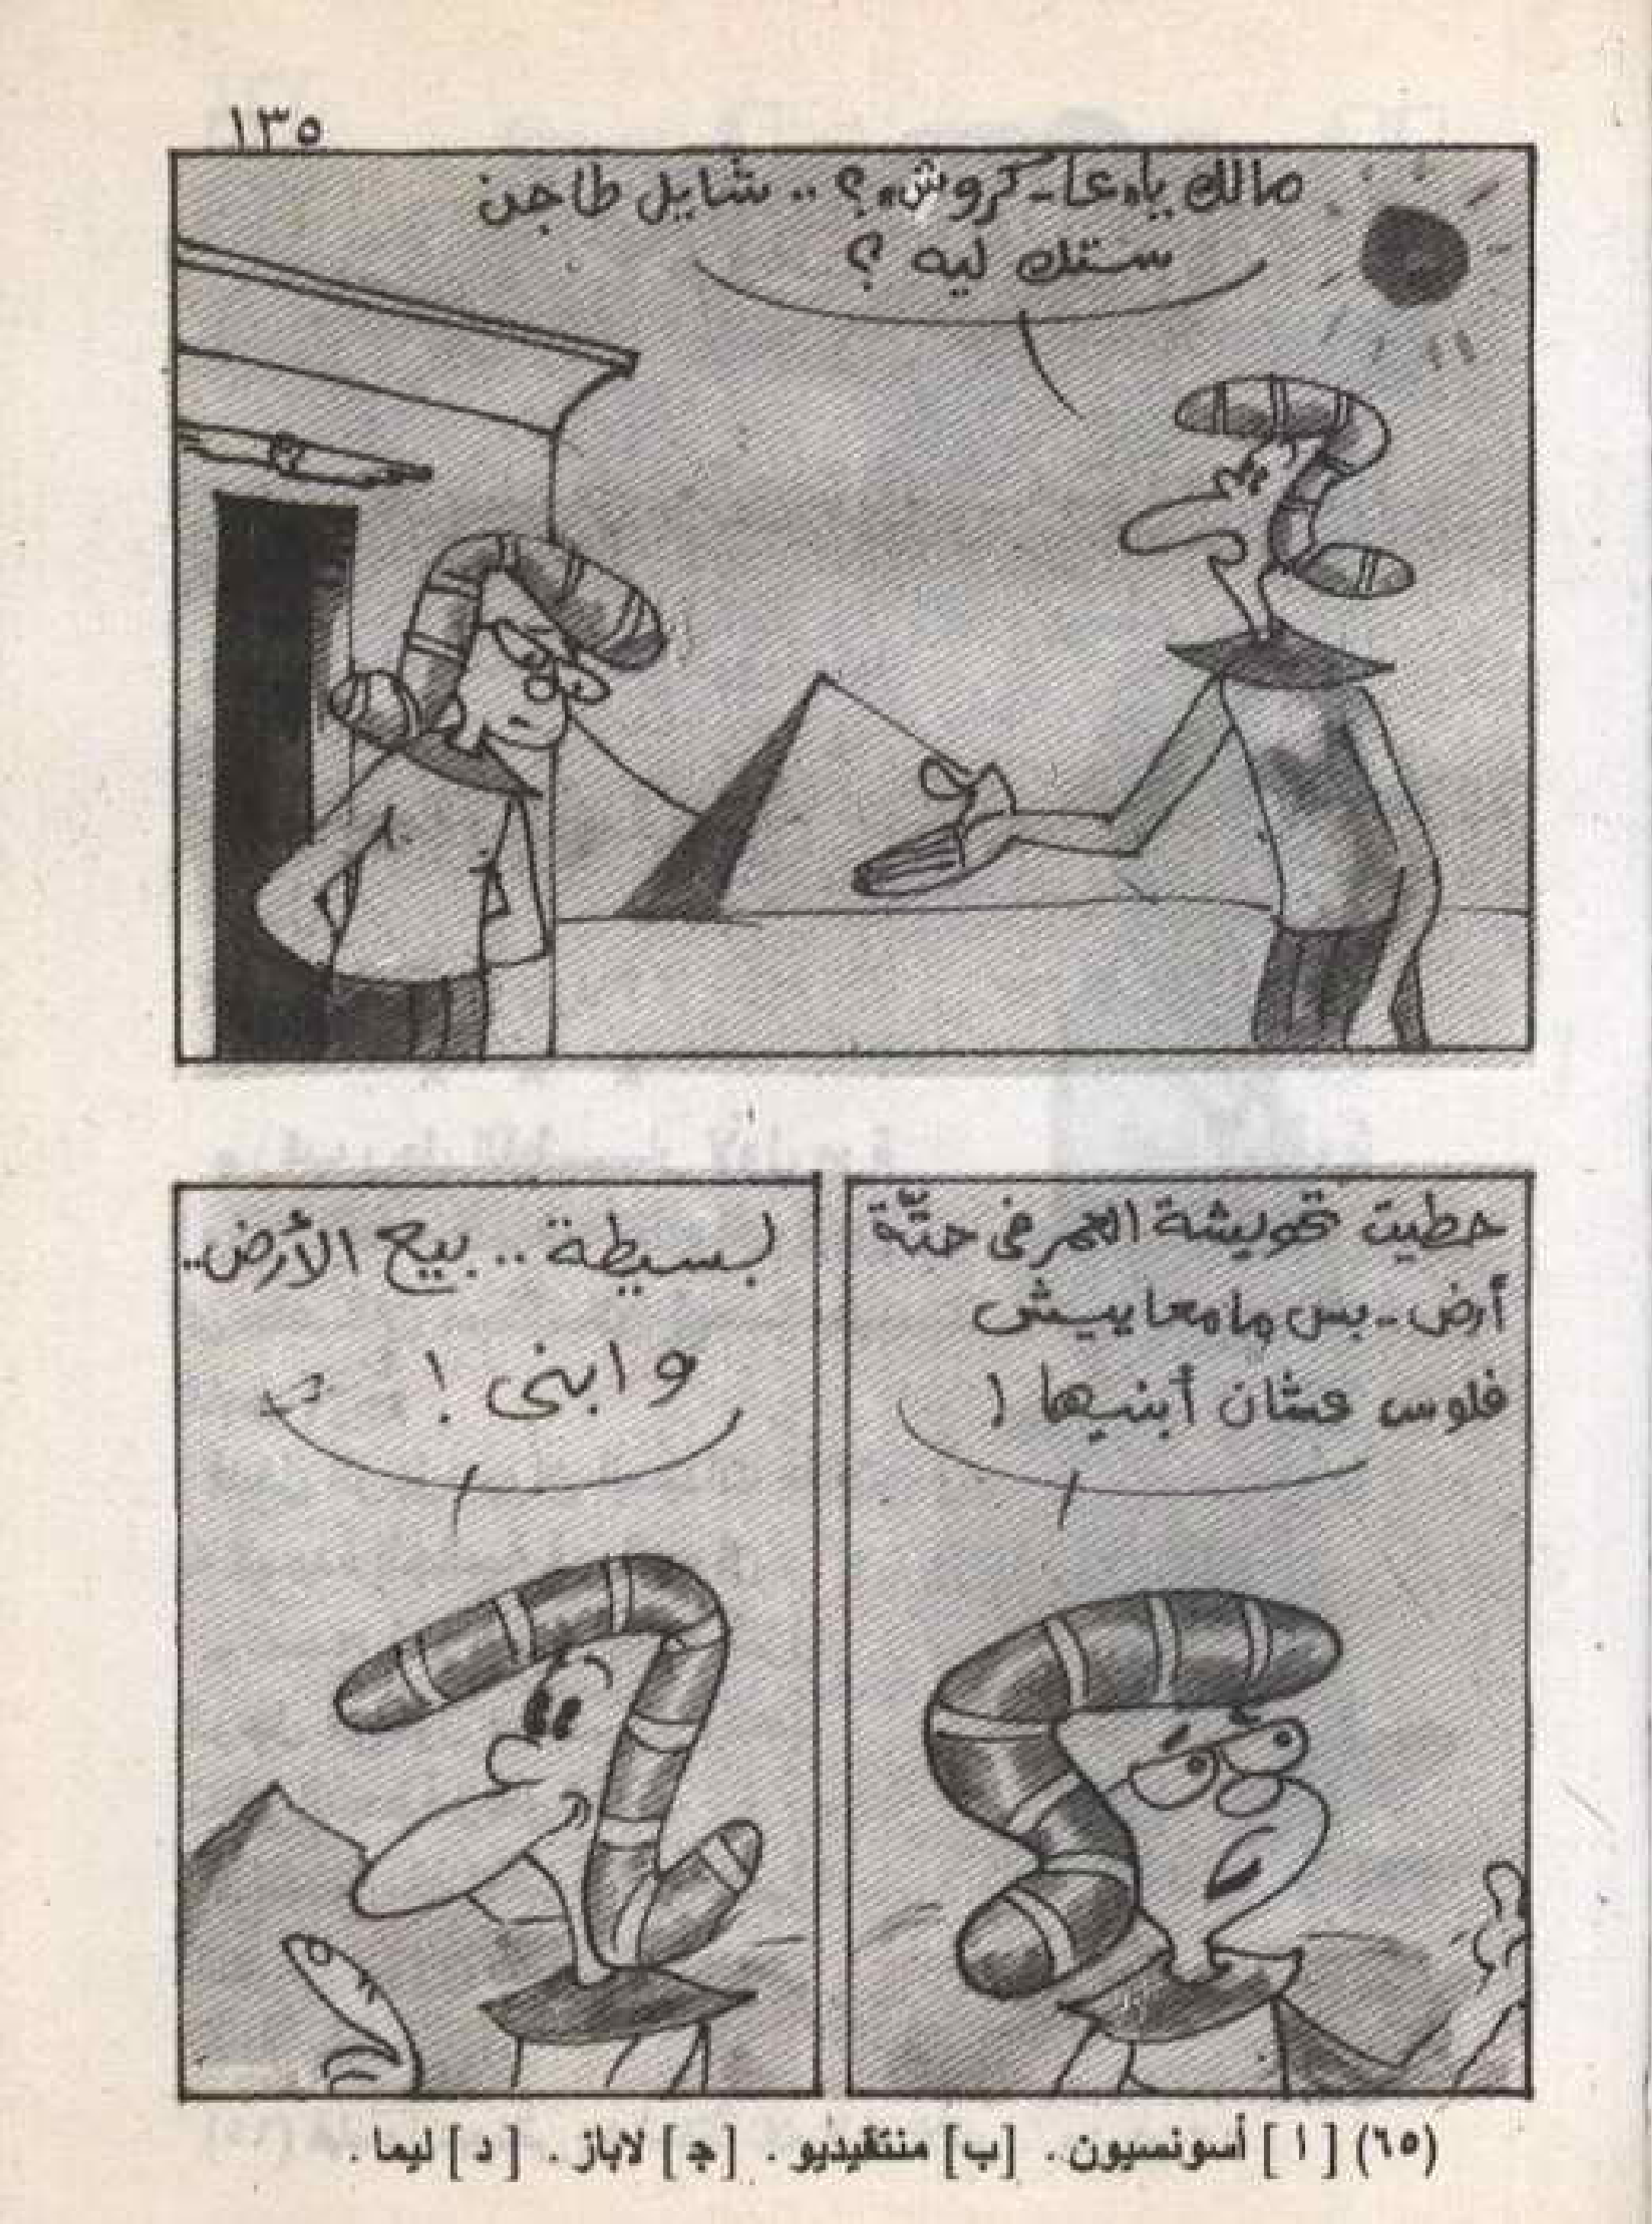 ١٣٥
مالك يا «عا-كروش»؟ .. شايل طاجن
ستك ليه ؟
حطيت تحويشة العمر فى حتّة
أرض .. بس ما معاييش
فلوس عشان أبنيها !
بسيطة .. بيع الأرض ..
وابنى !
(٦٥) [ ا ] أسونسيون . [ب] منتڤيديو . [ج] لاباز . [ د ] ليما .